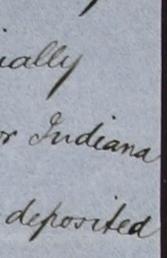 ially
or Indiana
deposited